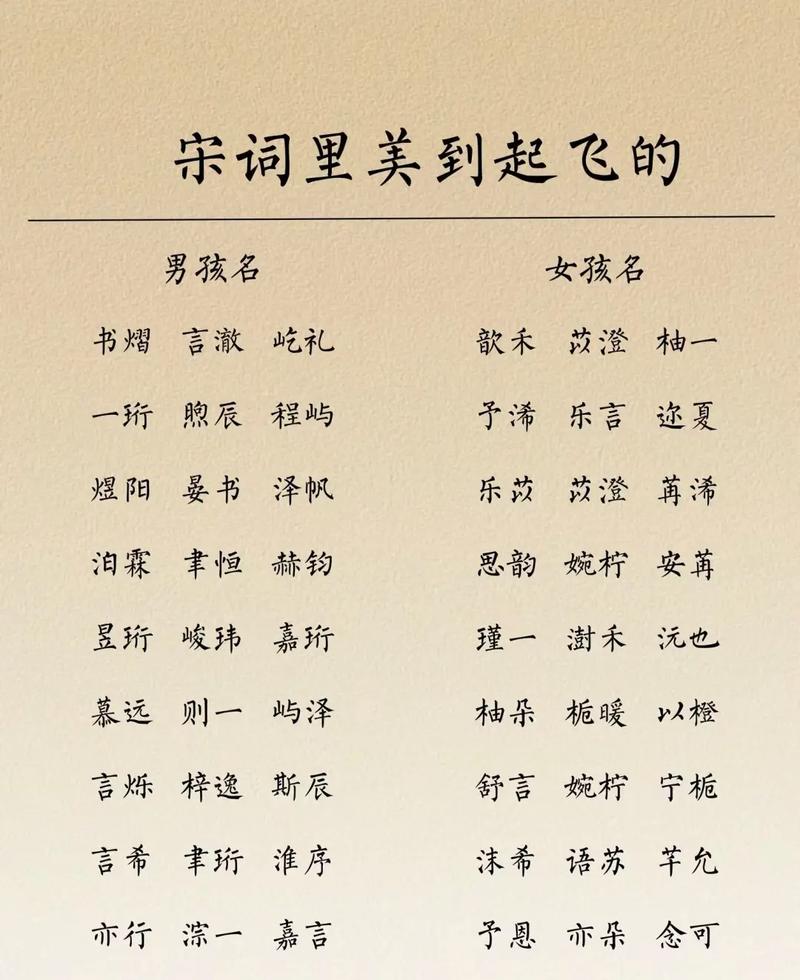 宋词里美到起飞的
男孩名 女孩名
书熠 言澈 屹礼 歆禾 苡澄 柚一
一珩 煦辰 程屿 予浠 乐言 迩夏
煜阳 晏书 泽帆 乐苡 苡澄 苒浠
洎霖 聿恒 赫钧 思韵 婉柠 安苒
昱珩 峻玮 嘉珩 瑾一 澍禾 沅也
慕远 则一 屿泽 柚朵 栀暖 以橙
言烁 梓逸 斯辰 舒言 婉柠 宁栀
言希 聿珩 淮序 沫希 语苏 芊允
亦行 淙一 嘉言 予恩 亦朵 念可